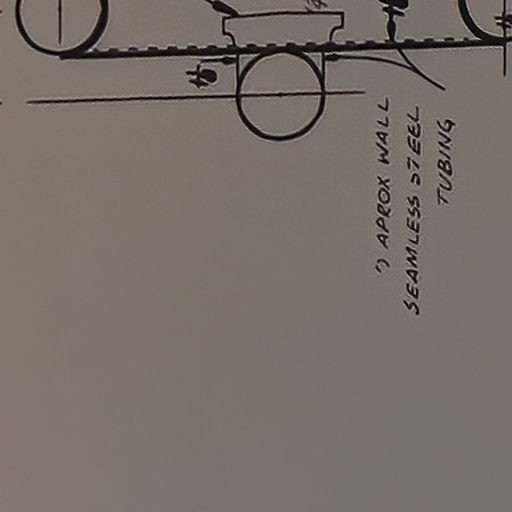 ") APROX WALL
SEAMLESS STEEL
TUBING